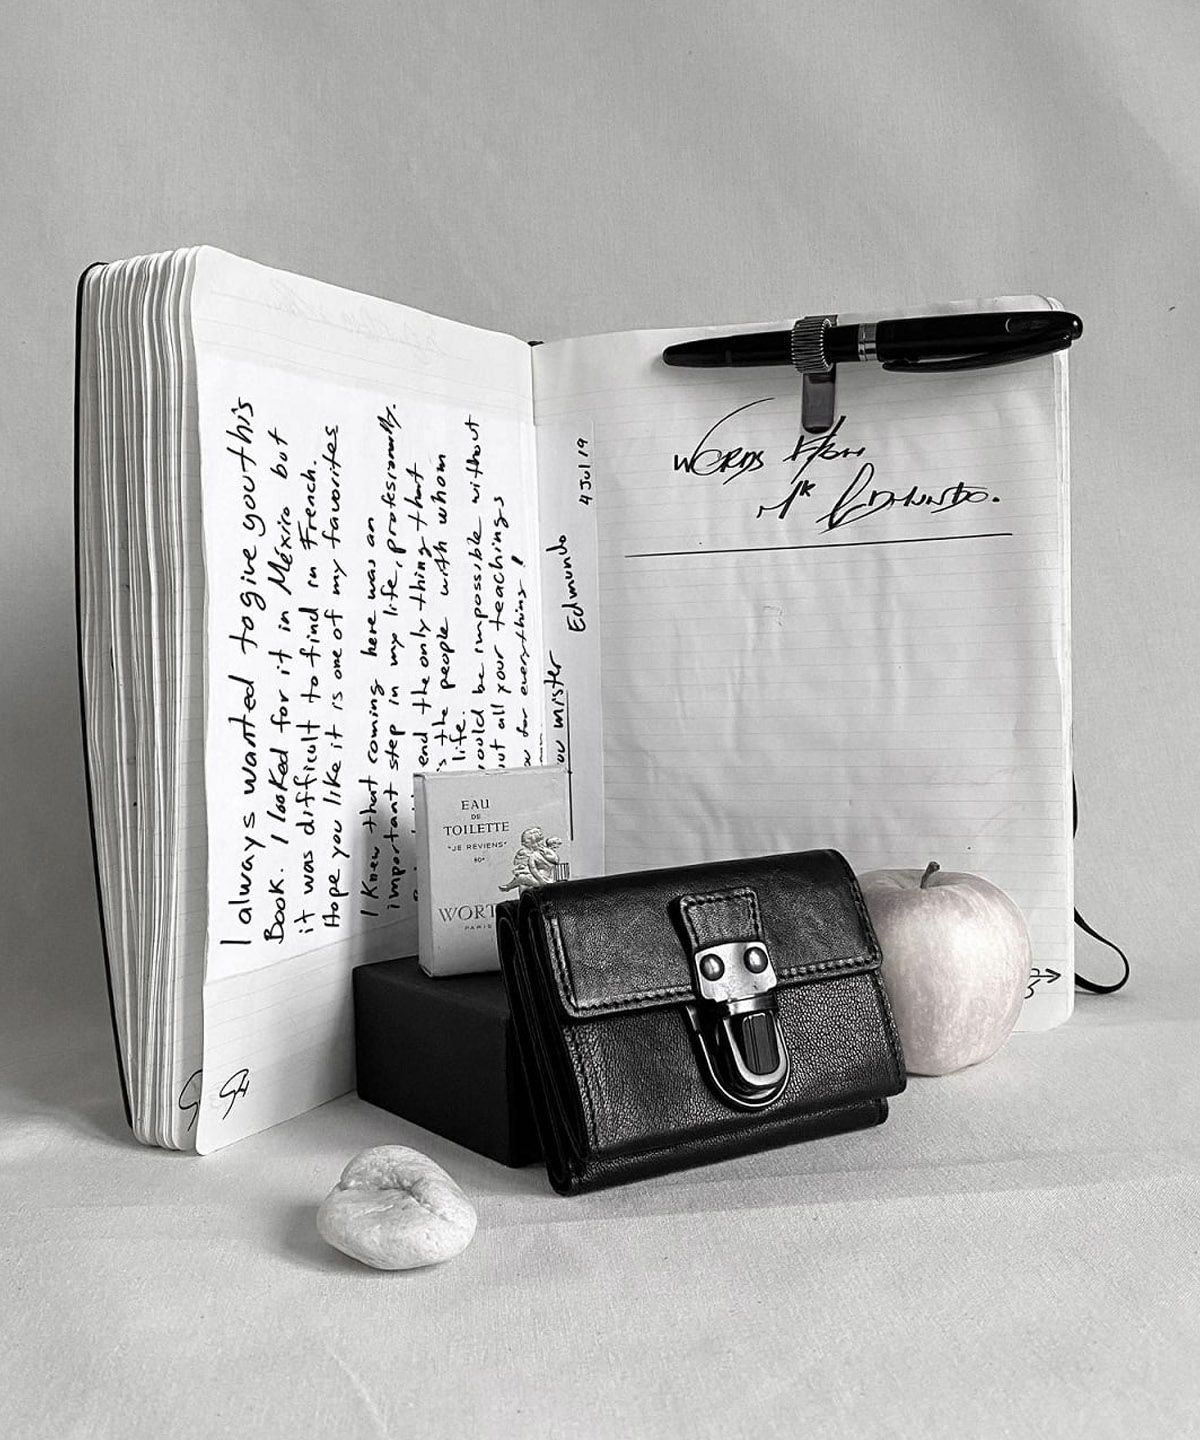 I always wanted to give you this
Book. I looked for it in México but
it was difficult to find in French.
Hope you like it is one of my favorites
I Knew that coming here was an
important step in my life, profesionally.
end the only thing that
is the people with whom
life.
would be impossible without
out all your teachings
you for everything!
you mister
Edmundo
4 Jul 19
WORDS FROM
MR EDMUNDO.
EAU
DE
TOILETTE
"JE REVIENS"
80°
WORT
PARIS